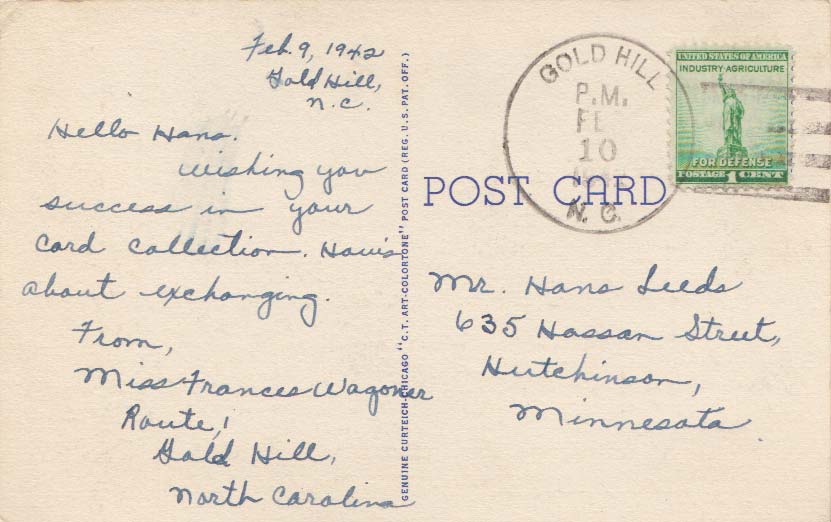 Feb. 9, 1942
Gold Hill,
N.C.
Hello Hans.
Wishing you
success in your
card collection. How's
about exchanging.
From,
Miss Frances Wagoner
Route, 1
Gold Hill,
North Carolina
GENUINE CURTEICH-CHICAGO "C.T. ART-COLORTONE" POST CARD (REG. U.S. PAT. OFF.)
POST CARD
GOLD HILL
P.M.
FE
10
N. C.
UNITED STATES OF AMERICA
INDUSTRY-AGRICULTURE
FOR DEFENSE
POSTAGE 1 CENT
Mr. Hans Leeds
635 Hassan Street,
Hutchinson,
Minnesota.